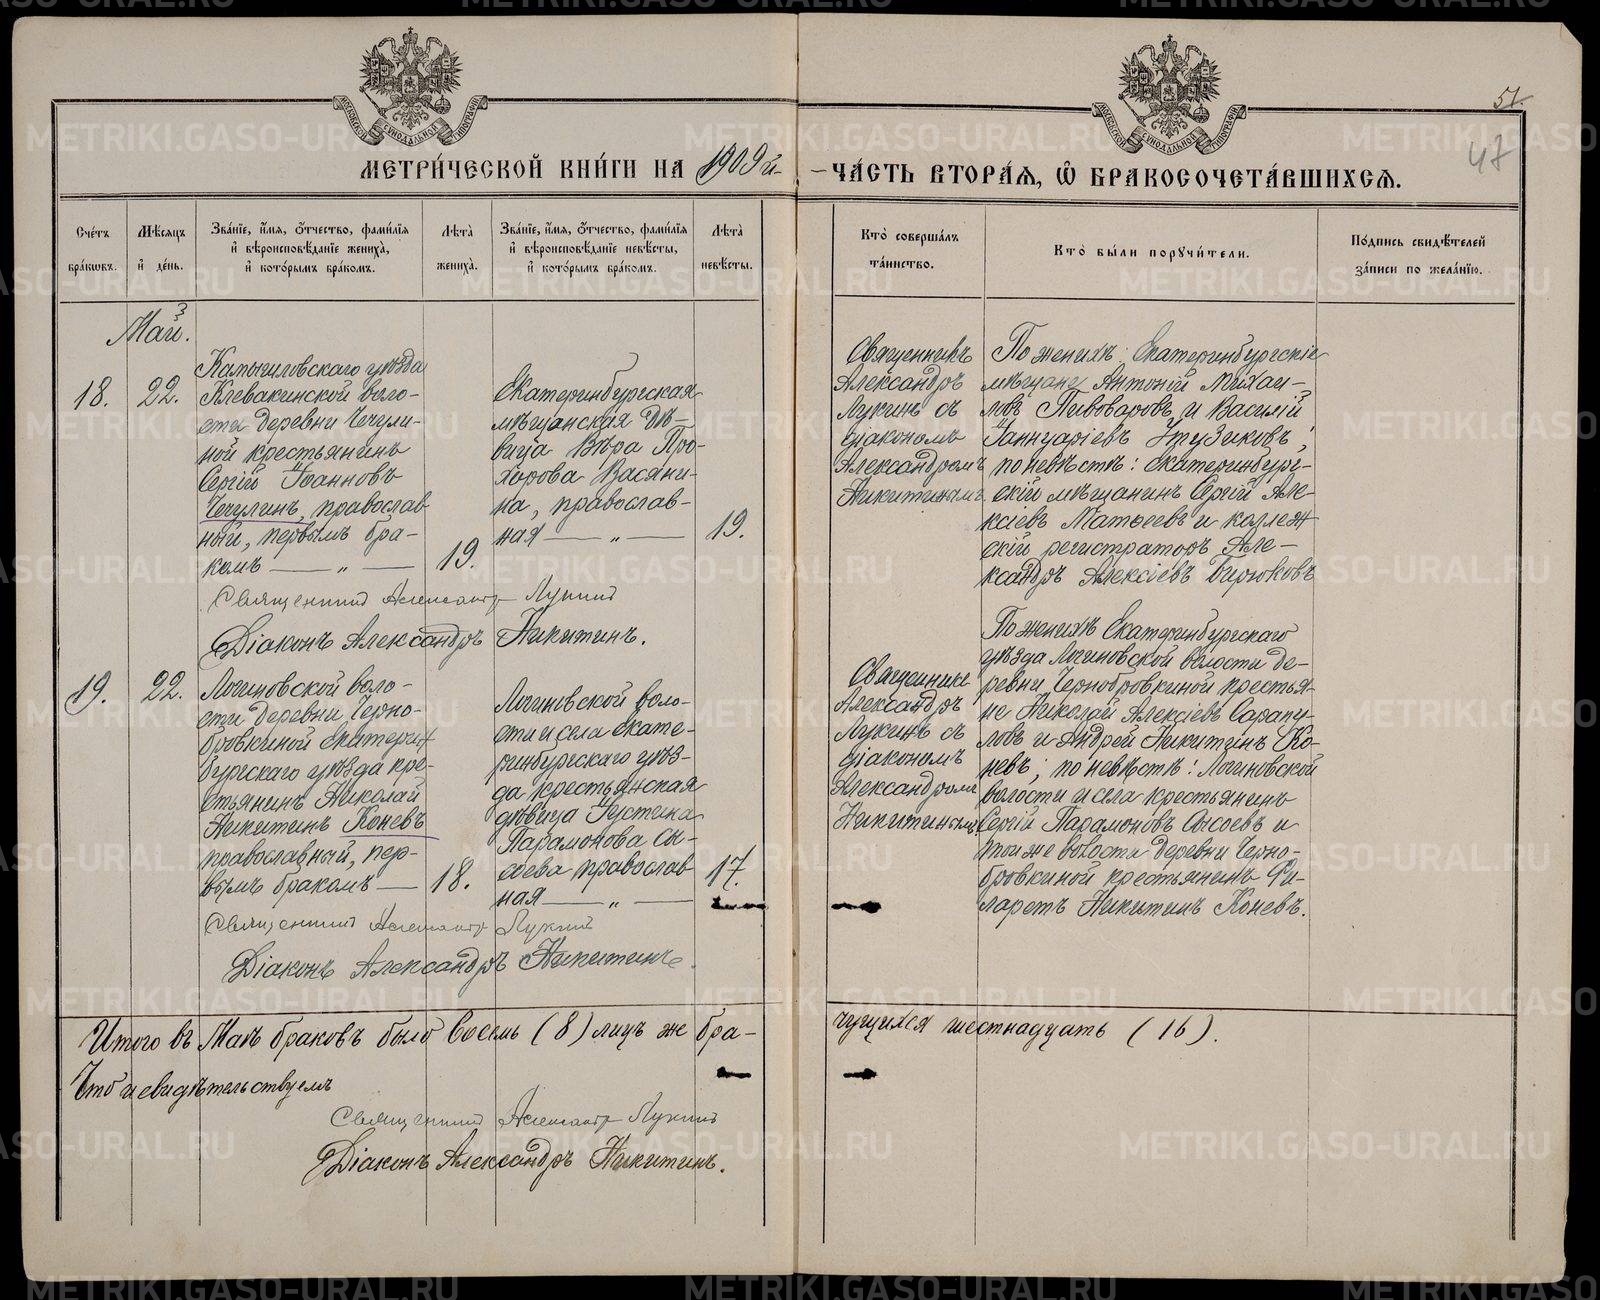 51
47
МОСКОВСКОЙ СѴНОДАЛЬНОЙ ТИПОГРАФІИ
МОСКОВСКОЙ СѴНОДАЛЬНОЙ ТИПОГРАФІИ
МЕТРИ́ЧЕСКОЙ КНИ́ГИ НА 1909й
ЧА́СТЬ ВТОРА́Ѧ, Ѽ БРАКОСОЧЕТА́ВШИХСѦ.
Сче́тъ бра́кѡвъ.
Мѣ́сяцъ и҆ де́нь.
Зва́нїе, и҆́мѧ, ѻ҆́тчество, фами́лїѧ и҆ вѣроисповѣ́данїе жениха̀, и҆ кото́рымъ бра́комъ.
Лѣ́та жениха̀.
Зва́нїе, и҆́мѧ, ѻ҆́тчество, фами́лїѧ и҆ вѣроисповѣ́данїе невѣ́сты, и҆ кото́рымъ бра́комъ.
Лѣ́та невѣ́сты.
Кто̀ соверша́лъ та́инство.
Кто̀ бы́ли поручи́тели.
По́дпись свидѣ́телей за́писи по жела́нїю.
Май.
18.
22.
Камышловскаго уѣзда
Клевакинской воло-
сти деревни Чечули-
ной крестьянинъ
Сергій Іоанновъ
Чечулинъ, православ
ный, первымъ бра-
комъ — „ —
19.
Екатеринбургская
мѣщанская дѣ-
вица Вѣра Про-
хорова Васяни-
на, православ-
ная — „ —
19.
Священникъ
Александръ
Лукинъ съ
діакономъ
Александромъ
Никитинымъ
По женихѣ: Екатеринбургскіе
мѣщане Антоній Михаи-
ловъ Пивоваровъ и Василій
Іаннуаріевъ Грузиковъ;
по невѣстѣ: Екатеринбург-
скій мѣщанинъ Сергій Але-
ксіевъ Матвеевъ и коллеж
скій регистраторъ Але-
ксандръ Алексіевъ Бирюковъ
Священникъ Александръ Лукинъ
Діаконъ Александръ Никитинъ.
19.
22.
Логиновской воло-
сти деревни Черно-
бровкиной Екатерин
бургскаго уѣзда кре-
стьянинъ Николай
Никитинъ Коневъ
православный, пер-
вымъ бракомъ —
18.
Логиновской воло-
сти и села Екате-
ринбургскаго уѣз-
да крестьянская
дѣвица Іустина
Парамонова Сы-
соева православ
ная — „ —
17.
Священникъ
Александръ
Лукинъ съ
діакономъ
Александромъ
Никитинымъ
По женихѣ Екатеринбургскаго
уѣзда Логиновской волости де-
ревни Чернобровкиной крестья-
не Николай Алексіевъ Сарапу-
ловъ и Андрей Никитинъ Ко-
невъ; по невѣстѣ: Логиновской
волости и села крестьянинъ
Сергій Парамоновъ Сысоевъ и
той же волости деревни Черно-
бровкиной крестьянинъ Фи-
ларетъ Никитинъ Коневъ.
Священникъ Александръ Лукинъ
Діаконъ Александръ Никитинъ.
Итого въ Маѣ браковъ было восемь (8) лицъ же бра-
чущихся шестнадцать (16).
Что и свидѣтельствуемъ
Священникъ Александръ Лукинъ
Діаконъ Александръ Никитинъ.
METRIKI.GASO-URAL.RU